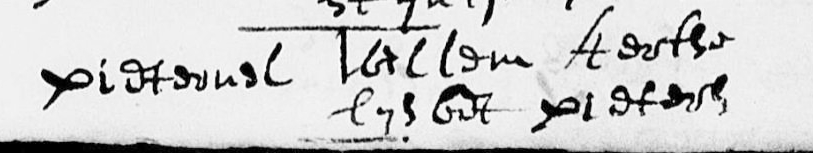 pieternel Willem Aertse
lysbet pieters